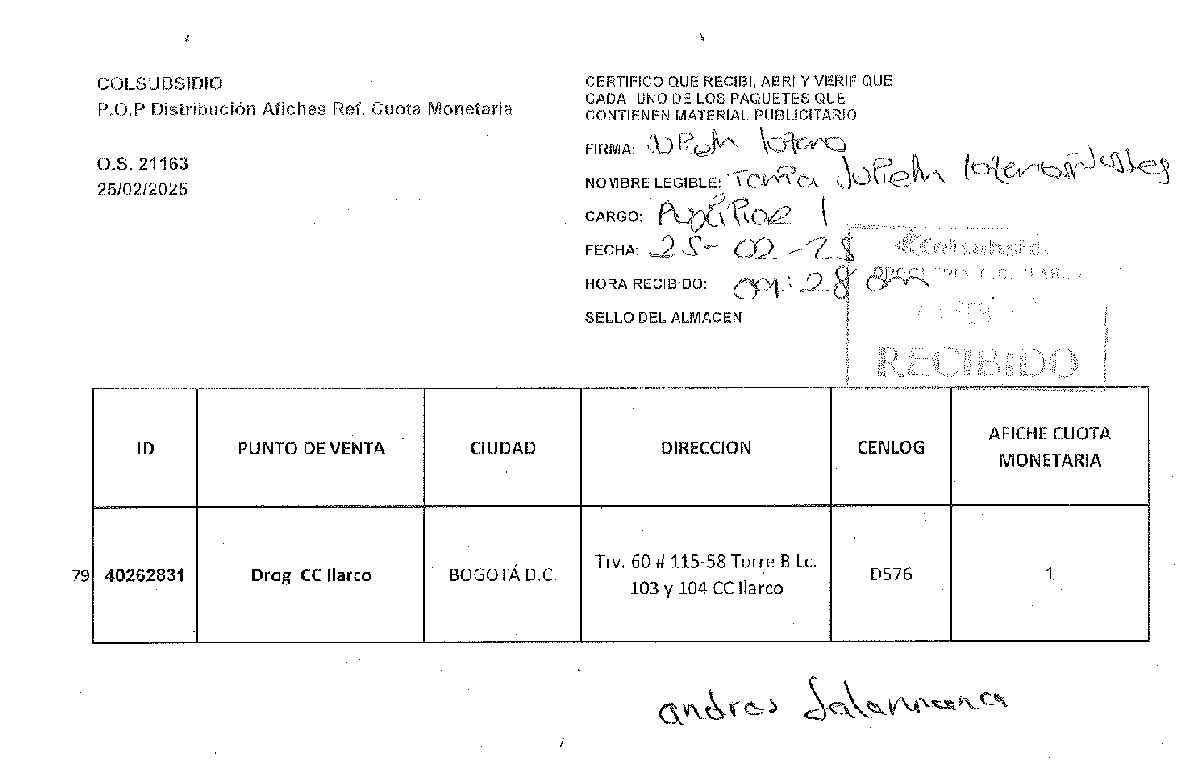 COLSUBSIDIO
P.O.P Distribución Afiches Ref. Cuota Monetaria
O.S. 21163
25/02/2025
CERTIFICO QUE RECIBI, ABRI Y VERIF QUE
CADA UNO DE LOS PAQUETES QUE
CONTIENEN MATERIAL PUBLICITARIO
FIRMA:
NOMBRE LEGIBLE: Tania Julieth
CARGO: 1
FECHA: 25-02-25
HORA RECIBIDO: 09:28 am
SELLO DEL ALMACEN
Colsubsidio
RECIBIDO
ID PUNTO DE VENTA CIUDAD DIRECCION CENLOG AFICHE CUOTA MONETARIA
79 40262831 Drog CC Ilarco BOGOTÁ D.C. Trv. 60 # 115-58 Torre B Lc. 103 y 104 CC Ilarco D576 1
andres Salamanca